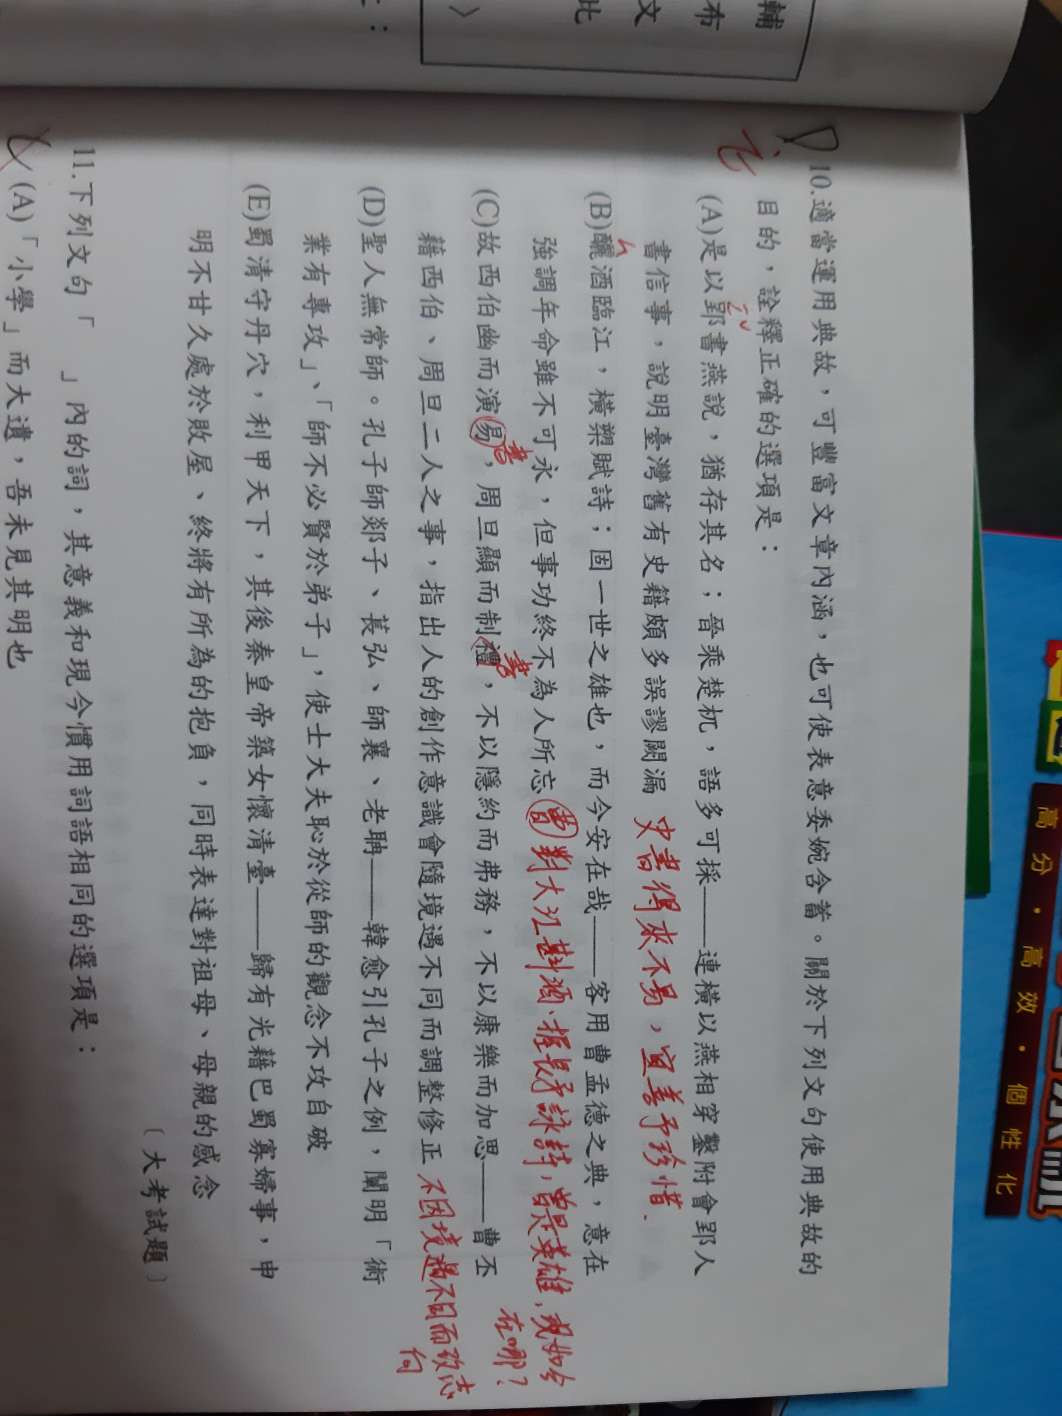 輔
布
文
此
10.適當運用典故，可豐富文章內涵，也可使表意委婉含蓄。關於下列文句使用典故的
目的，詮釋正確的選項是：
(A)是以郢書燕說，猶存其名；晉乘楚杌，語多可採——連橫以燕相穿鑿附會郢人
書信事，說明臺灣舊有史籍頗多誤謬闕漏 史書得來不易，宜善予珍惜.
(B)釃酒臨江，橫槊賦詩；固一世之雄也，而今安在哉——客用曹孟德之典，意在
強調年命雖不可永，但事功終不為人所忘 曹對大江斟酒、握長矛詠詩，曾是英雄，現如今
在哪？
(C)故西伯幽而演易，周旦顯而制禮，不以隱約而弗務，不以康樂而加思——曹丕
書
書
藉西伯、周旦二人之事，指出人的創作意識會隨境遇不同而調整修正 不因境遇不同而改志
向
(D)聖人無常師。孔子師郯子、萇弘、師襄、老聃——韓愈引孔子之例，闡明「術
業有專攻」、「師不必賢於弟子」，使士大夫恥於從師的觀念不攻自破
(E)蜀清守丹穴，利甲天下，其後秦皇帝築女懷清臺——歸有光藉巴蜀寡婦事，申
明不甘久處於敗屋、終將有所為的抱負，同時表達對祖母、母親的感念
〔大考試題〕
11.下列文句「 」內的詞，其意義和現今慣用詞語相同的選項是：
(A)「小學」而大遺，吾未見其明也
高分·高效·個性化